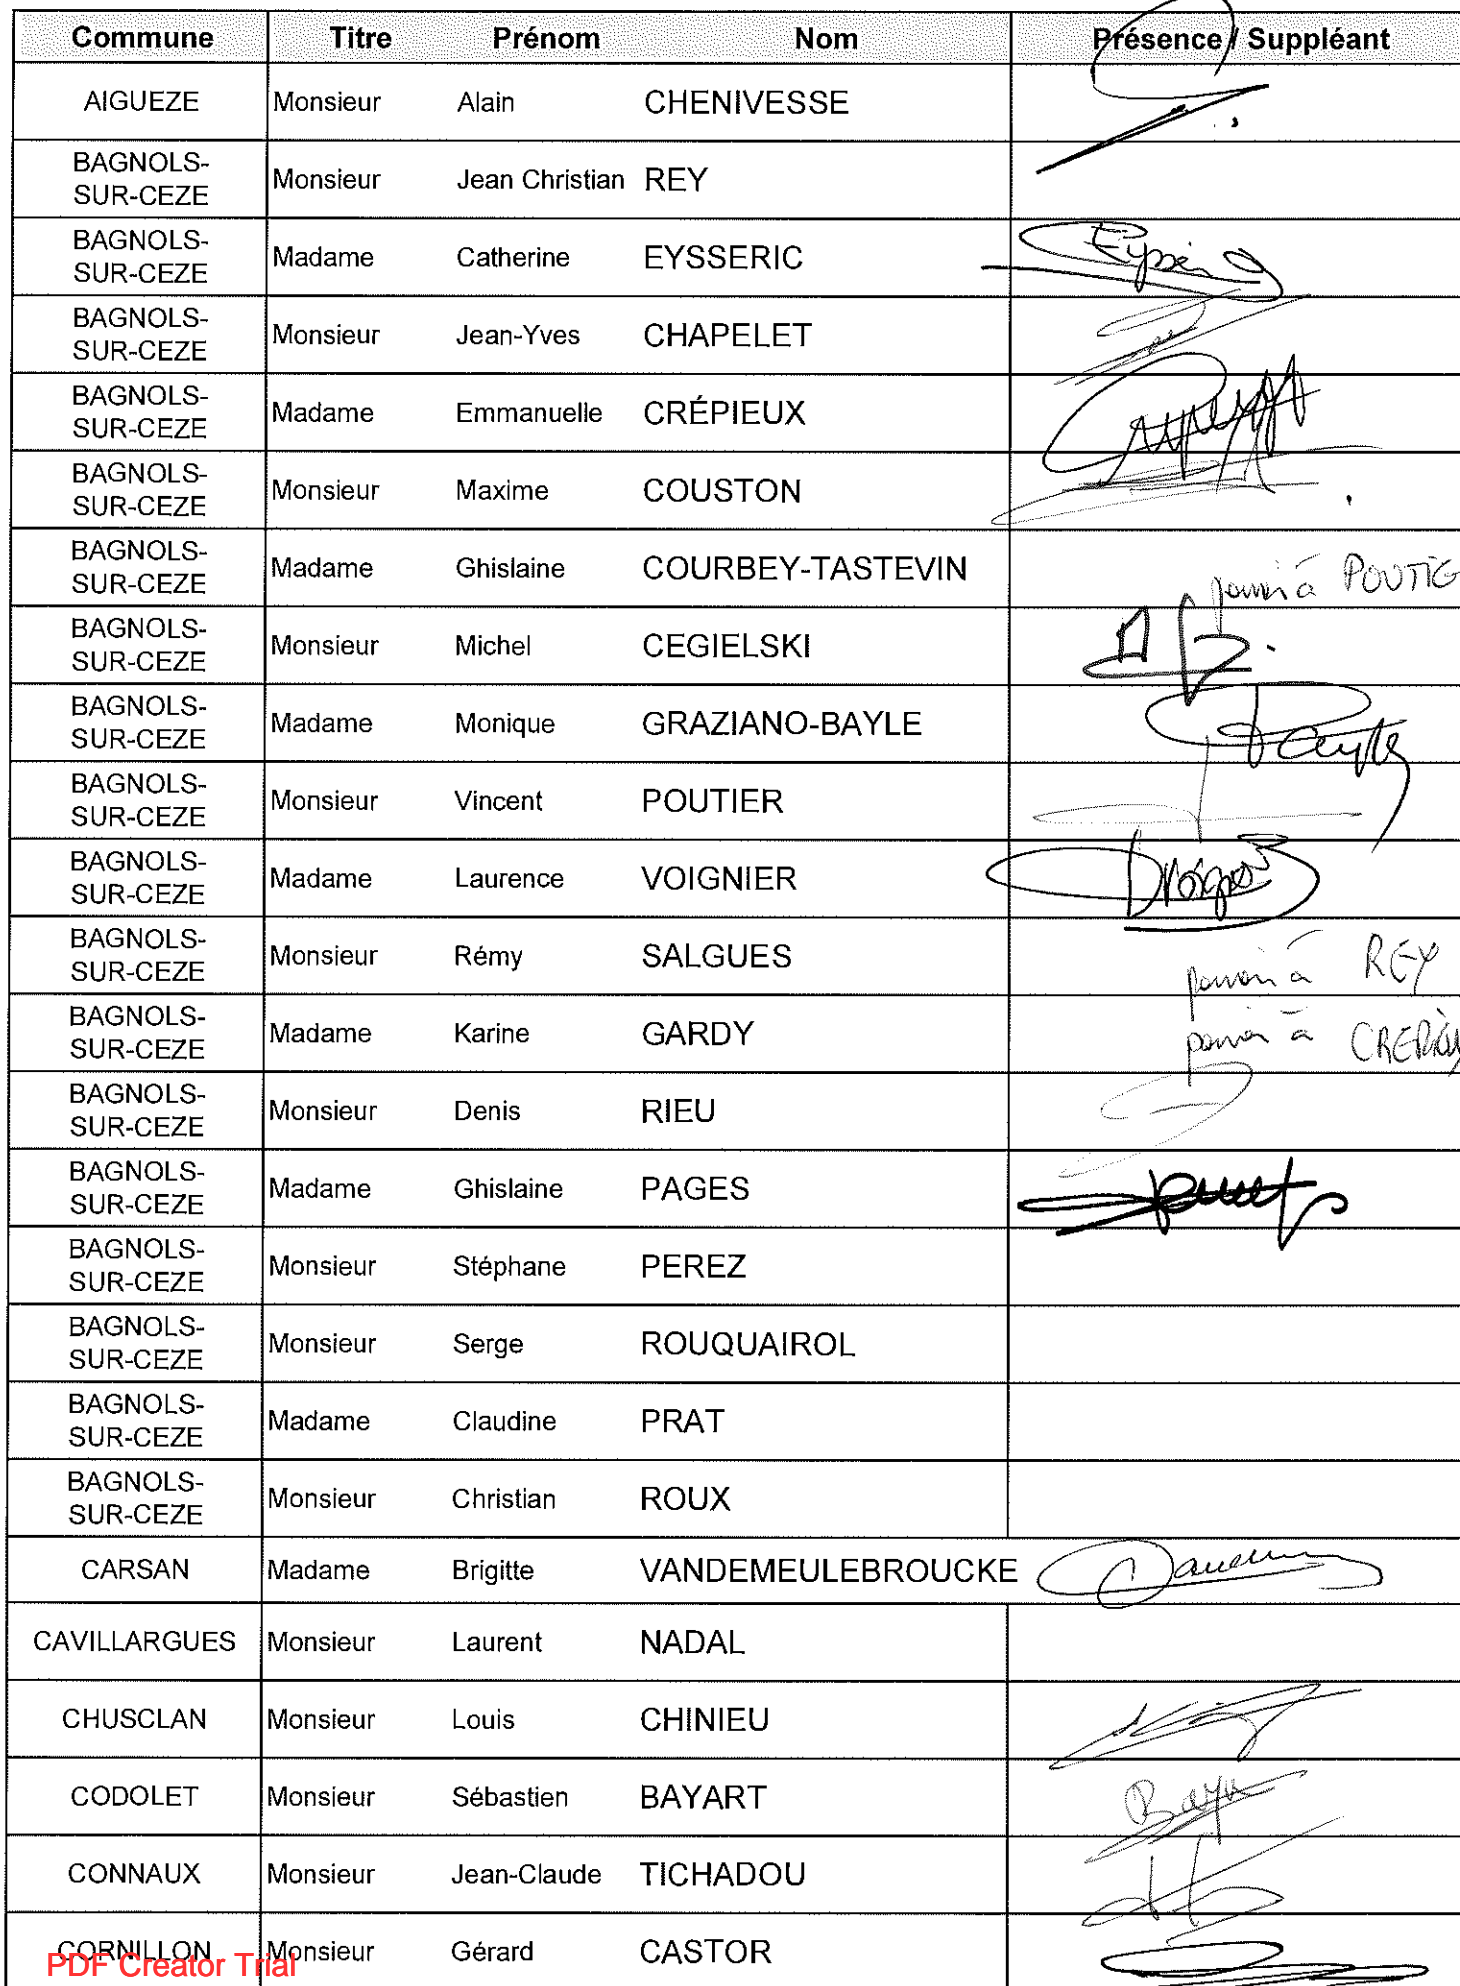 Commune Titre Prénom Nom Présence / Suppléant
AIGUEZE Monsieur Alain CHENIVESSE
BAGNOLS-
SUR-CEZE Monsieur Jean Christian REY
BAGNOLS-
SUR-CEZE Madame Catherine EYSSERIC
BAGNOLS-
SUR-CEZE Monsieur Jean-Yves CHAPELET
BAGNOLS-
SUR-CEZE Madame Emmanuelle CRÉPIEUX
BAGNOLS-
SUR-CEZE Monsieur Maxime COUSTON
BAGNOLS-
SUR-CEZE Madame Ghislaine COURBEY-TASTEVIN pouvoir à POUTIE
BAGNOLS-
SUR-CEZE Monsieur Michel CEGIELSKI
BAGNOLS-
SUR-CEZE Madame Monique GRAZIANO-BAYLE
BAGNOLS-
SUR-CEZE Monsieur Vincent POUTIER
BAGNOLS-
SUR-CEZE Madame Laurence VOIGNIER
BAGNOLS-
SUR-CEZE Monsieur Rémy SALGUES pouvoir à REY
BAGNOLS-
SUR-CEZE Madame Karine GARDY pouvoir à
BAGNOLS-
SUR-CEZE Monsieur Denis RIEU
BAGNOLS-
SUR-CEZE Madame Ghislaine PAGES
BAGNOLS-
SUR-CEZE Monsieur Stéphane PEREZ
BAGNOLS-
SUR-CEZE Monsieur Serge ROUQUAIROL
BAGNOLS-
SUR-CEZE Madame Claudine PRAT
BAGNOLS-
SUR-CEZE Monsieur Christian ROUX
CARSAN Madame Brigitte VANDEMEULEBROUCKE
CAVILLARGUES Monsieur Laurent NADAL
CHUSCLAN Monsieur Louis CHINIEU
CODOLET Monsieur Sébastien BAYART
CONNAUX Monsieur Jean-Claude TICHADOU
CORNILLON Monsieur Gérard CASTOR
PDF Creator Trial